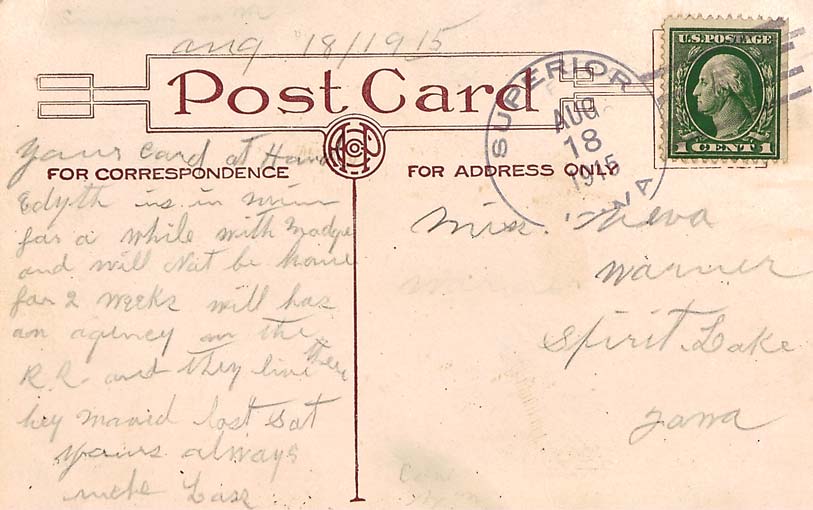 aug 18/1915
Post Card
U.S. POSTAGE
1 CENT 1
SUPERIOR
AUG
18
1915
yours card at Hand
FOR CORRESPONDENCE
FOR ADDRESS ONLY
Edyth is in
for a while with Madge
and will Not be home
for 2 weeks will has
an agency on the
R.R. and they live there
hey maried last Sat
yours always
Miss. Neva
Warner
Spirit Lake
Iowa